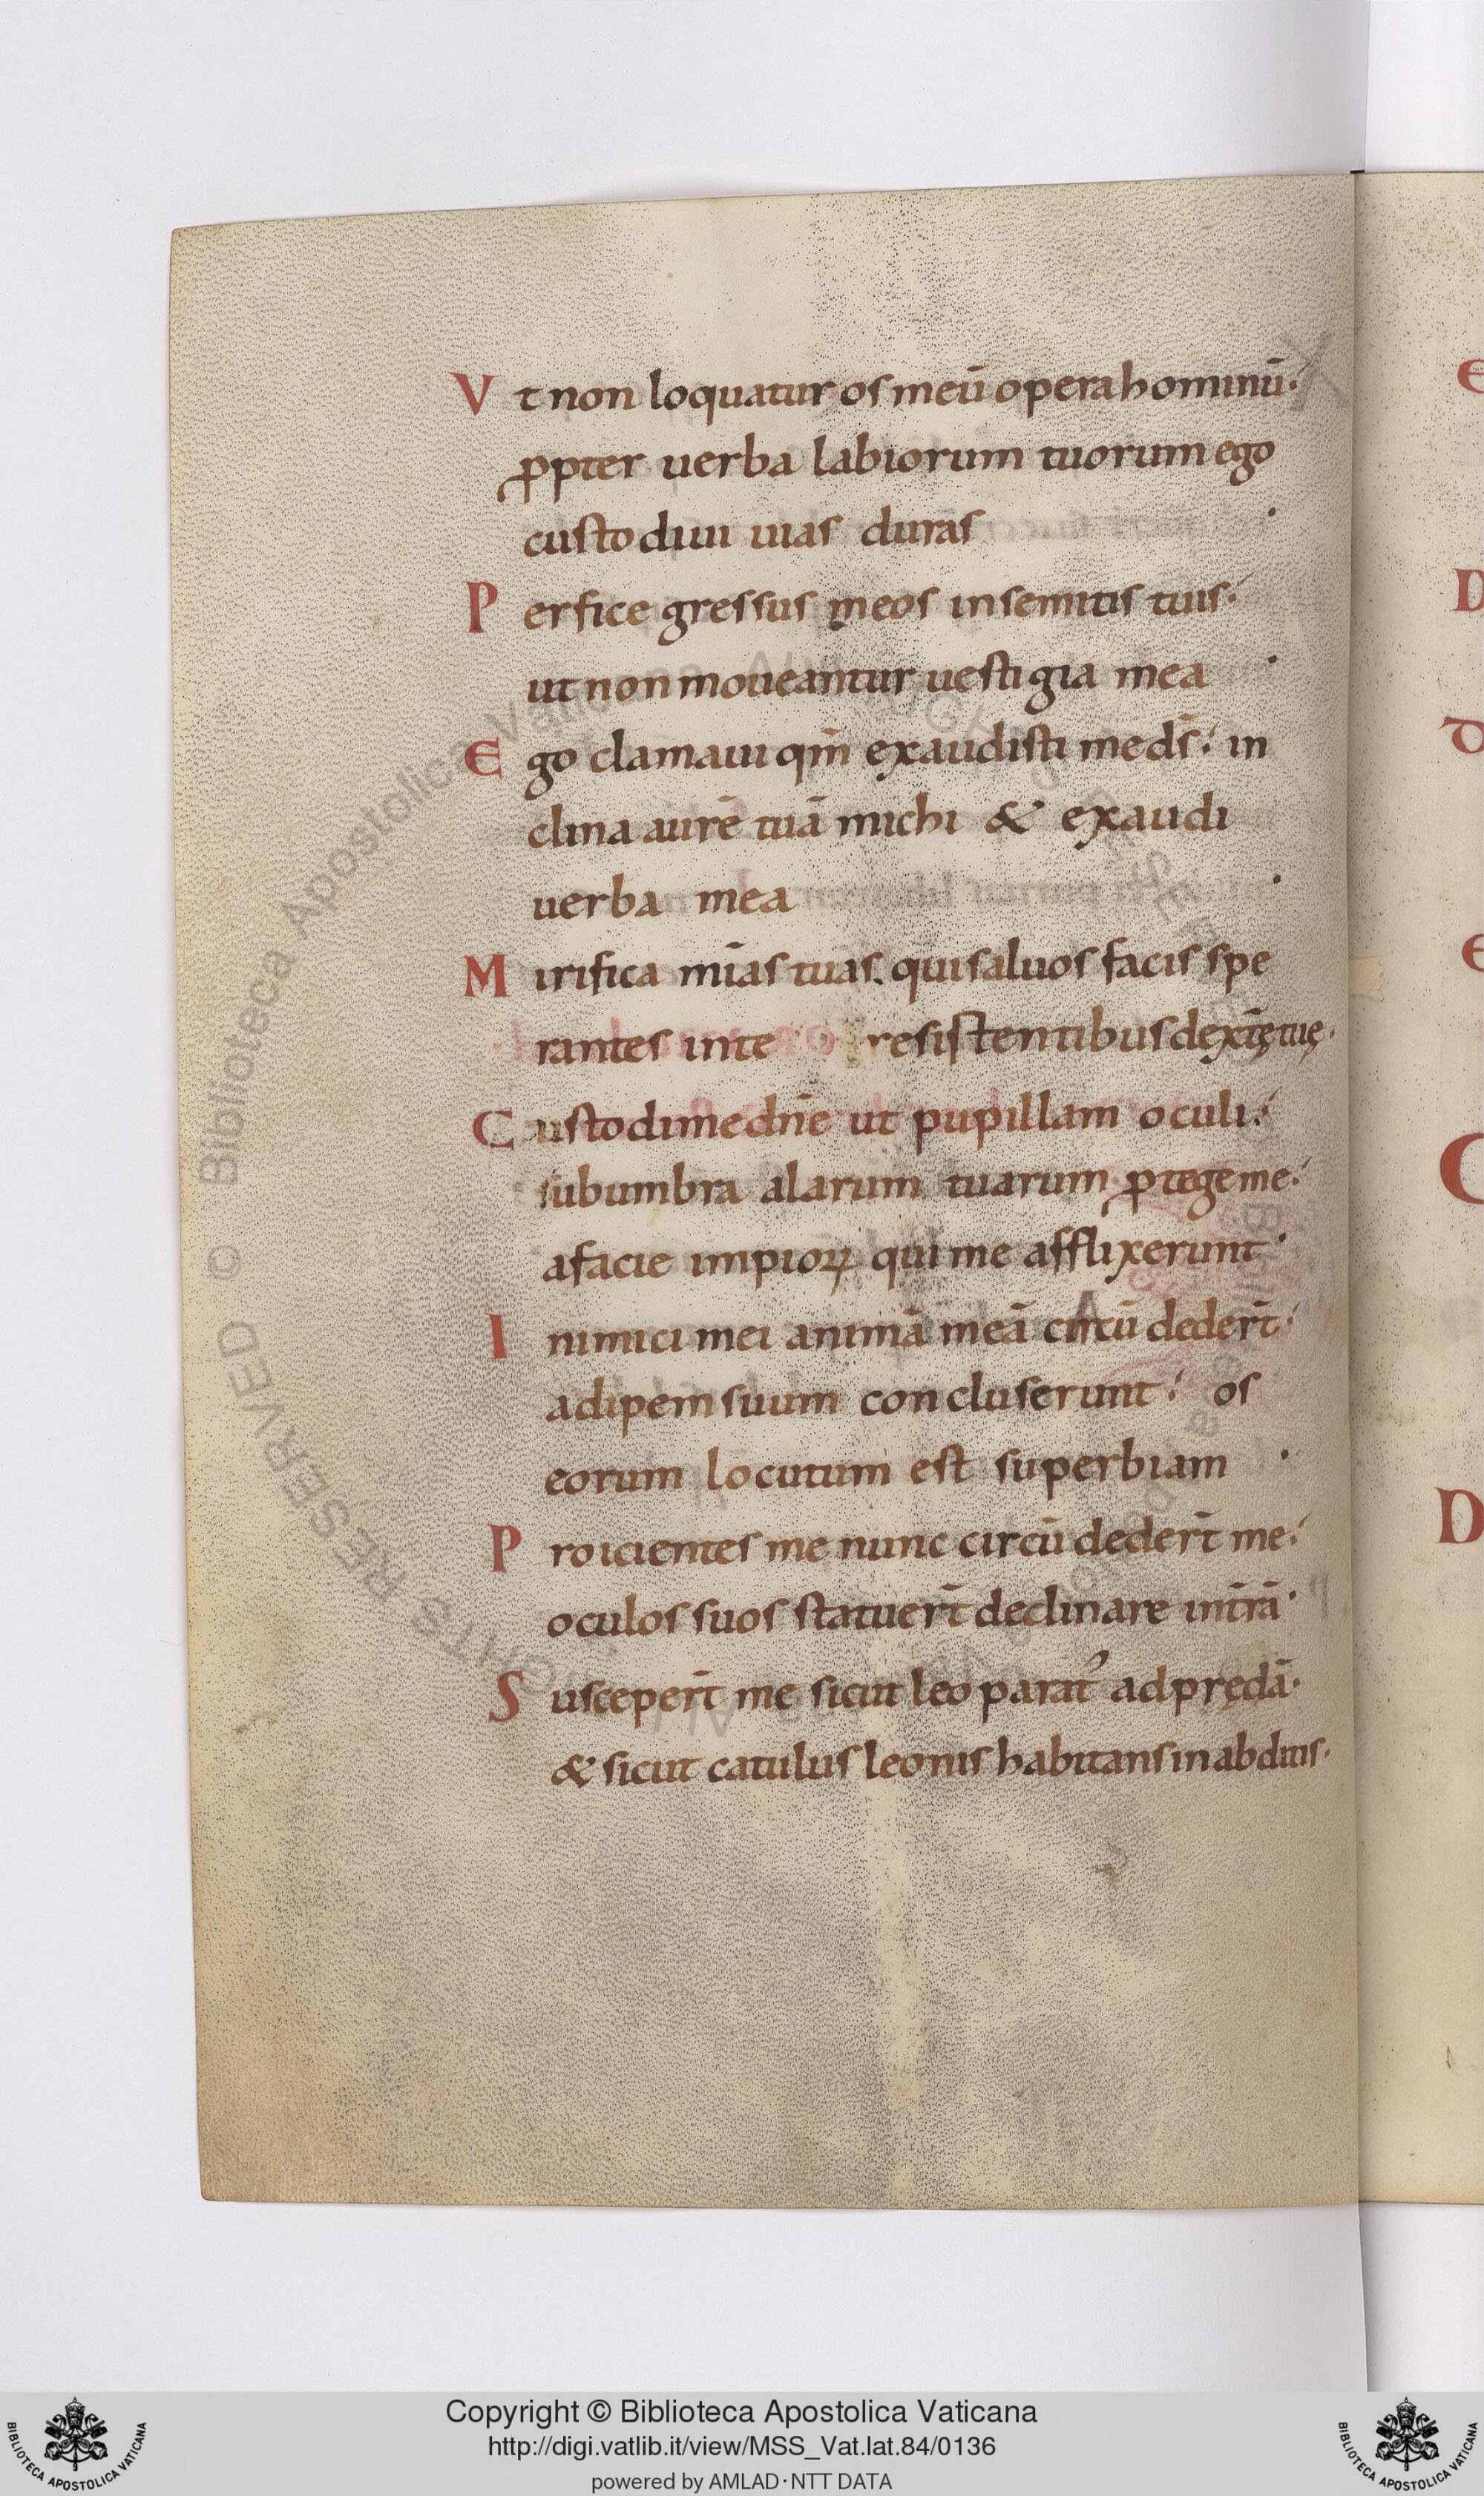 Vt non loquatur os meū opera hominū·
ꝓpter uerba labiorum tuorum ego
custodiui uias duras ·
Perfice gressus meos in semitis tuis·
ut non moueantur uestigia mea ·
Ego clamaui qm̄ exaudisti me ds̄· in
clina aurē tuā michi & exaudi
uerba mea ·
Mirifica mīas tuas. qui saluos facis spe
rantes in te resistentibus dext̄ę tuę·
Custodi me dn̄e ut pupillam oculi·
sub umbra alarum tuarum ꝓtege me·
a facie impioꝝ qui me afflixerunt·
Inimici mei animā meā circū dedert̄·
adipem suum concluserunt· os
eorum locutum est superbiam ·
Proicientes me nunc circū dedert̄ me·
oculos suos statuert̄ declinare in t̄rā·
Suscepert̄ me sicut leo parat᾽ ad prędā·
& sicut catulus leonis habitans in abditis·
E
D
D
E
C
D
Copyright © Biblioteca Apostolica Vaticana
http://digi.vatlib.it/view/MSS_Vat.lat.84/0136
powered by AMLAD·NTT DATA
BIBLIOTECA APOSTOLICA VATICANA
BIBLIOTECA APOSTOLICA VATICANA